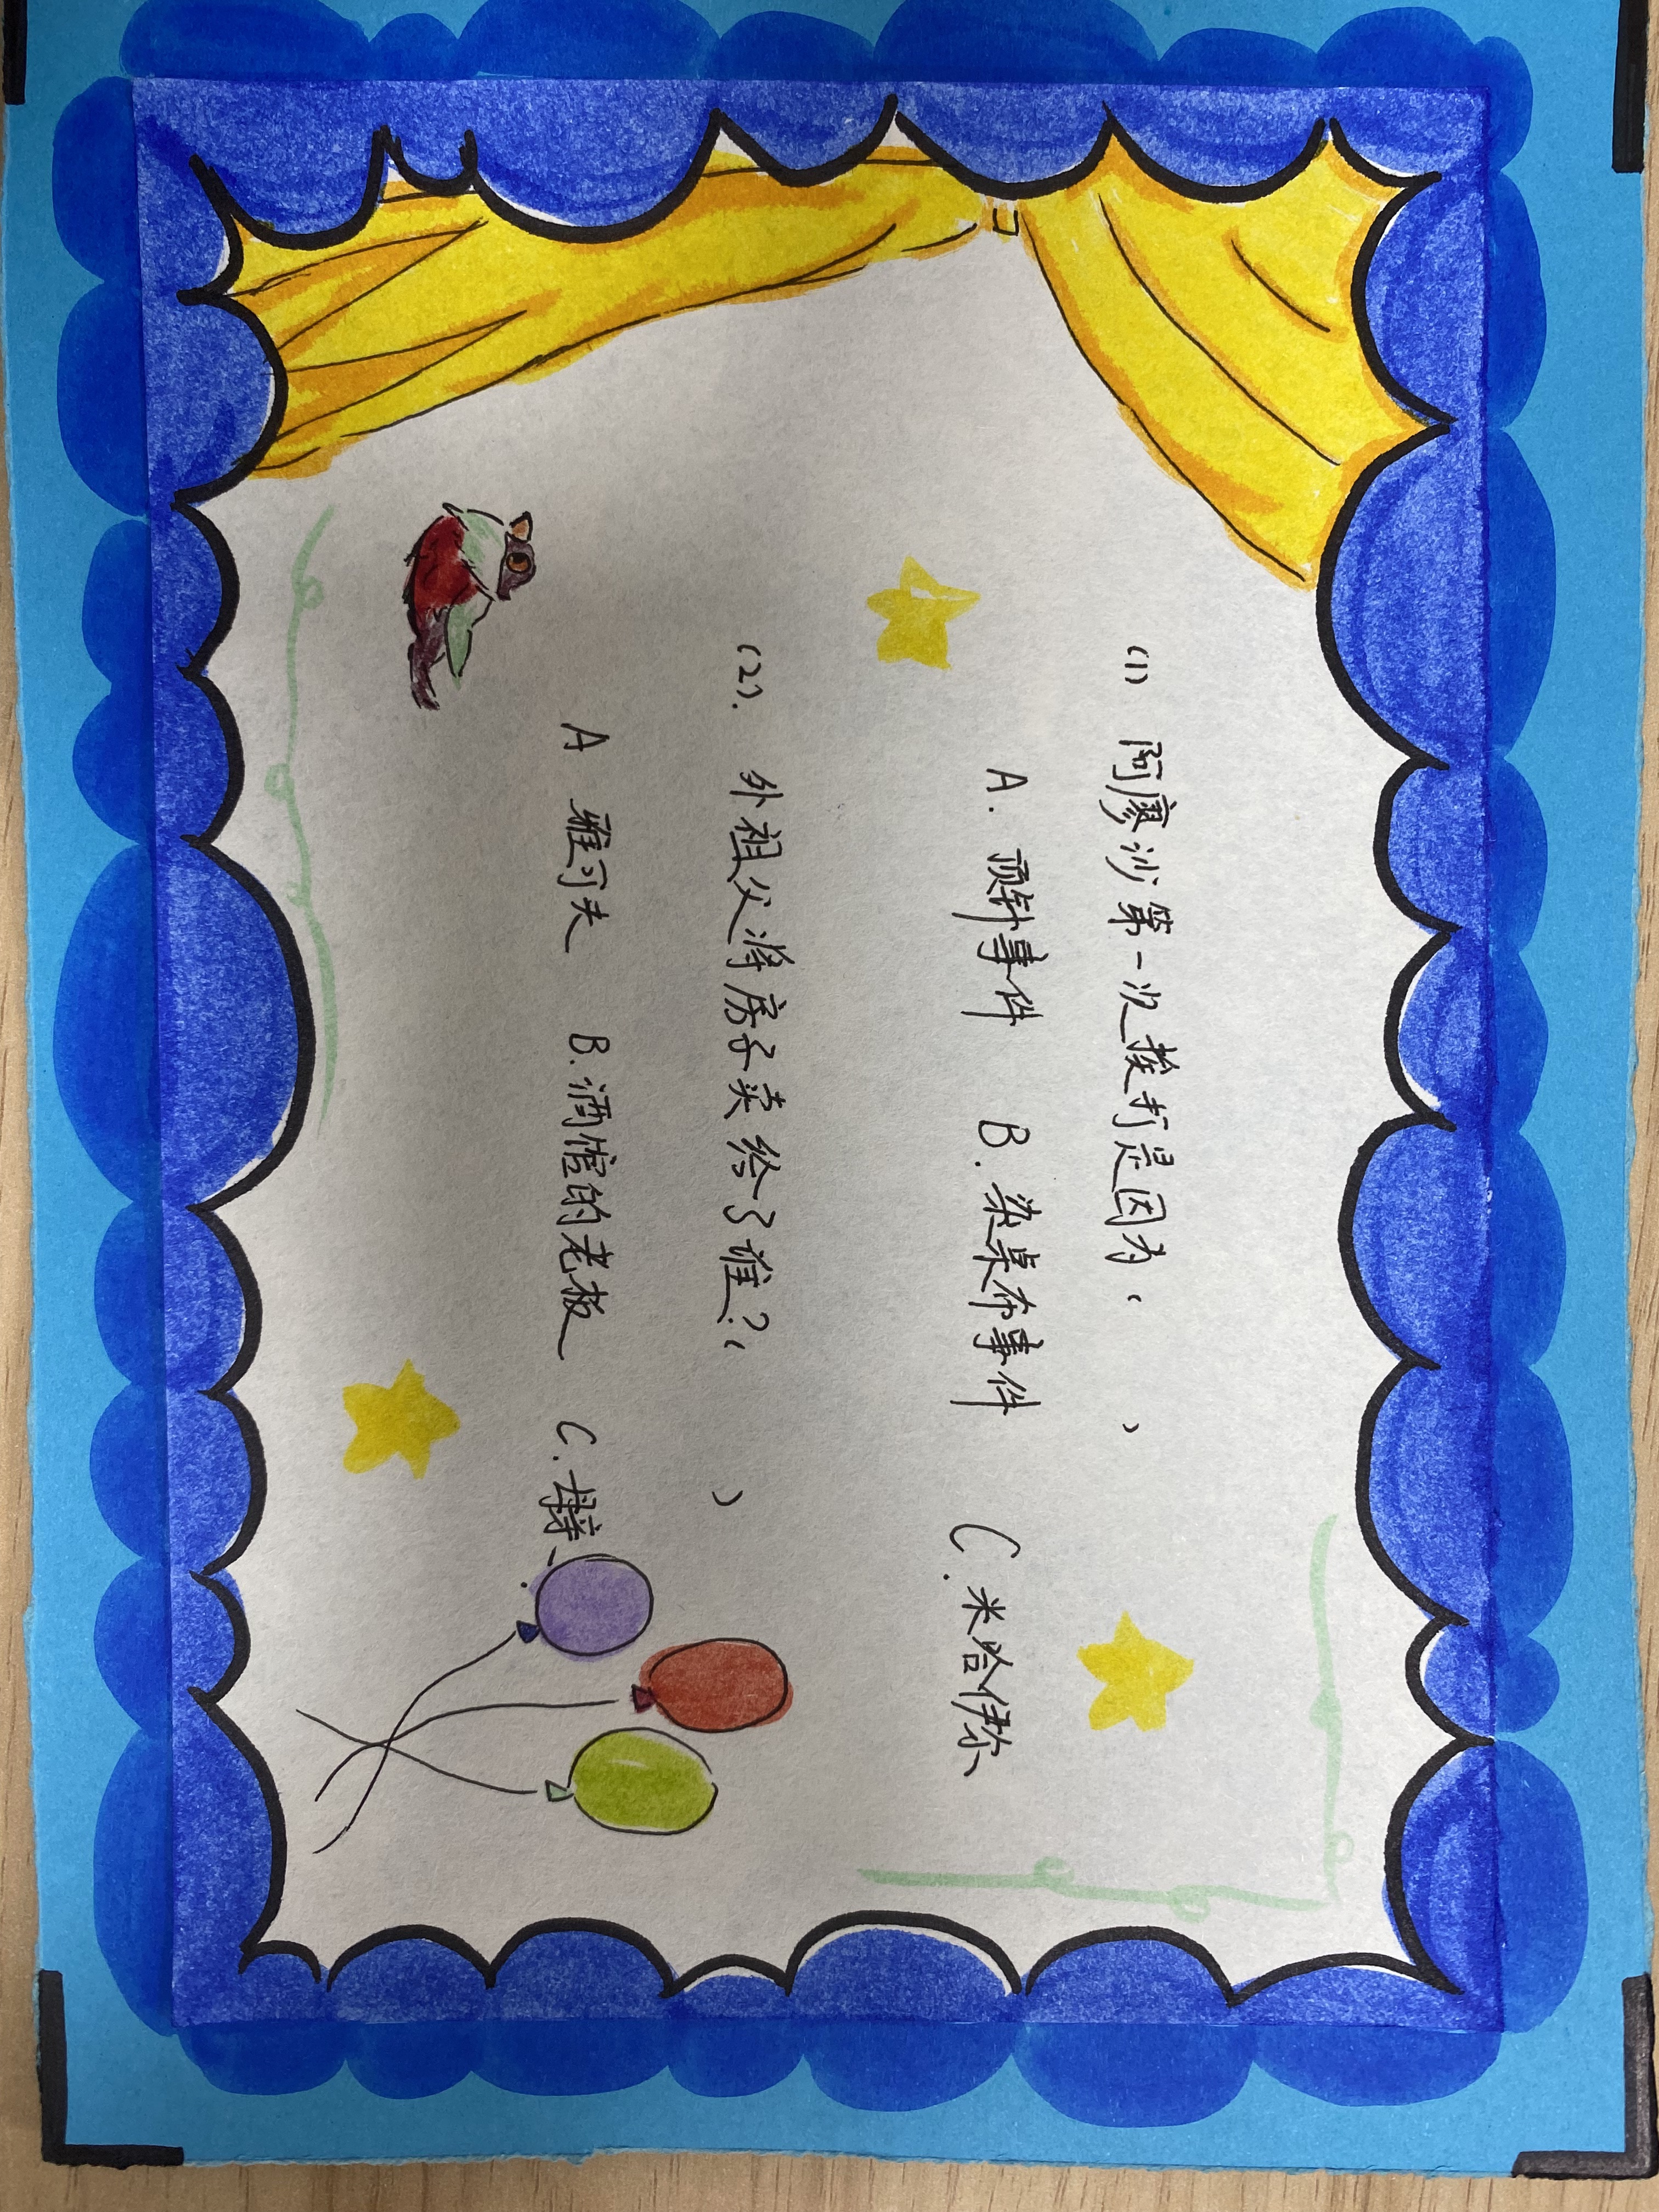 (1) 阿廖沙第一次挨打是因为( )
A. 顶针事件 B. 染桌布事件 C. 米哈伊尔
(2). 外祖父将房子卖给了谁?( )
A 雅可夫 B. 酒馆的老板 C.